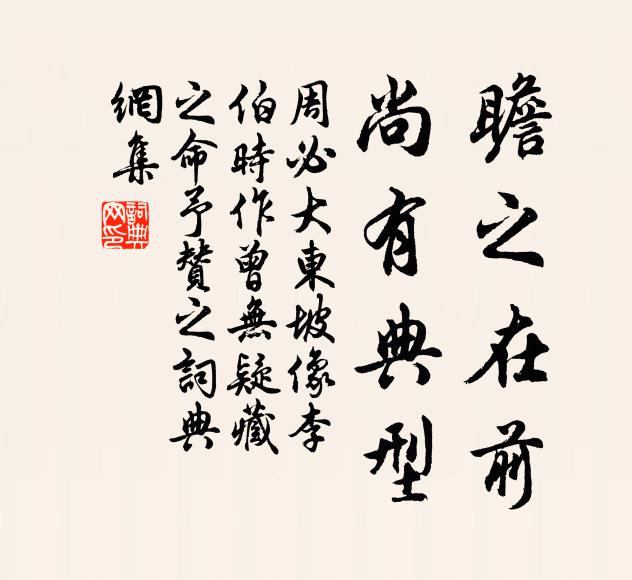 瞻之在前
尚有典型
周必大東坡像李
伯時作曾無疑藏
之命予贊之詞典
網集
詞典
网印